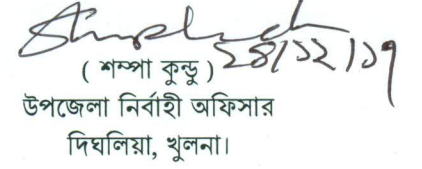 ২৪/১২/১৭
( শম্পা কুন্ডু )
উপজেলা নির্বাহী অফিসার
দিঘলিয়া, খুলনা।